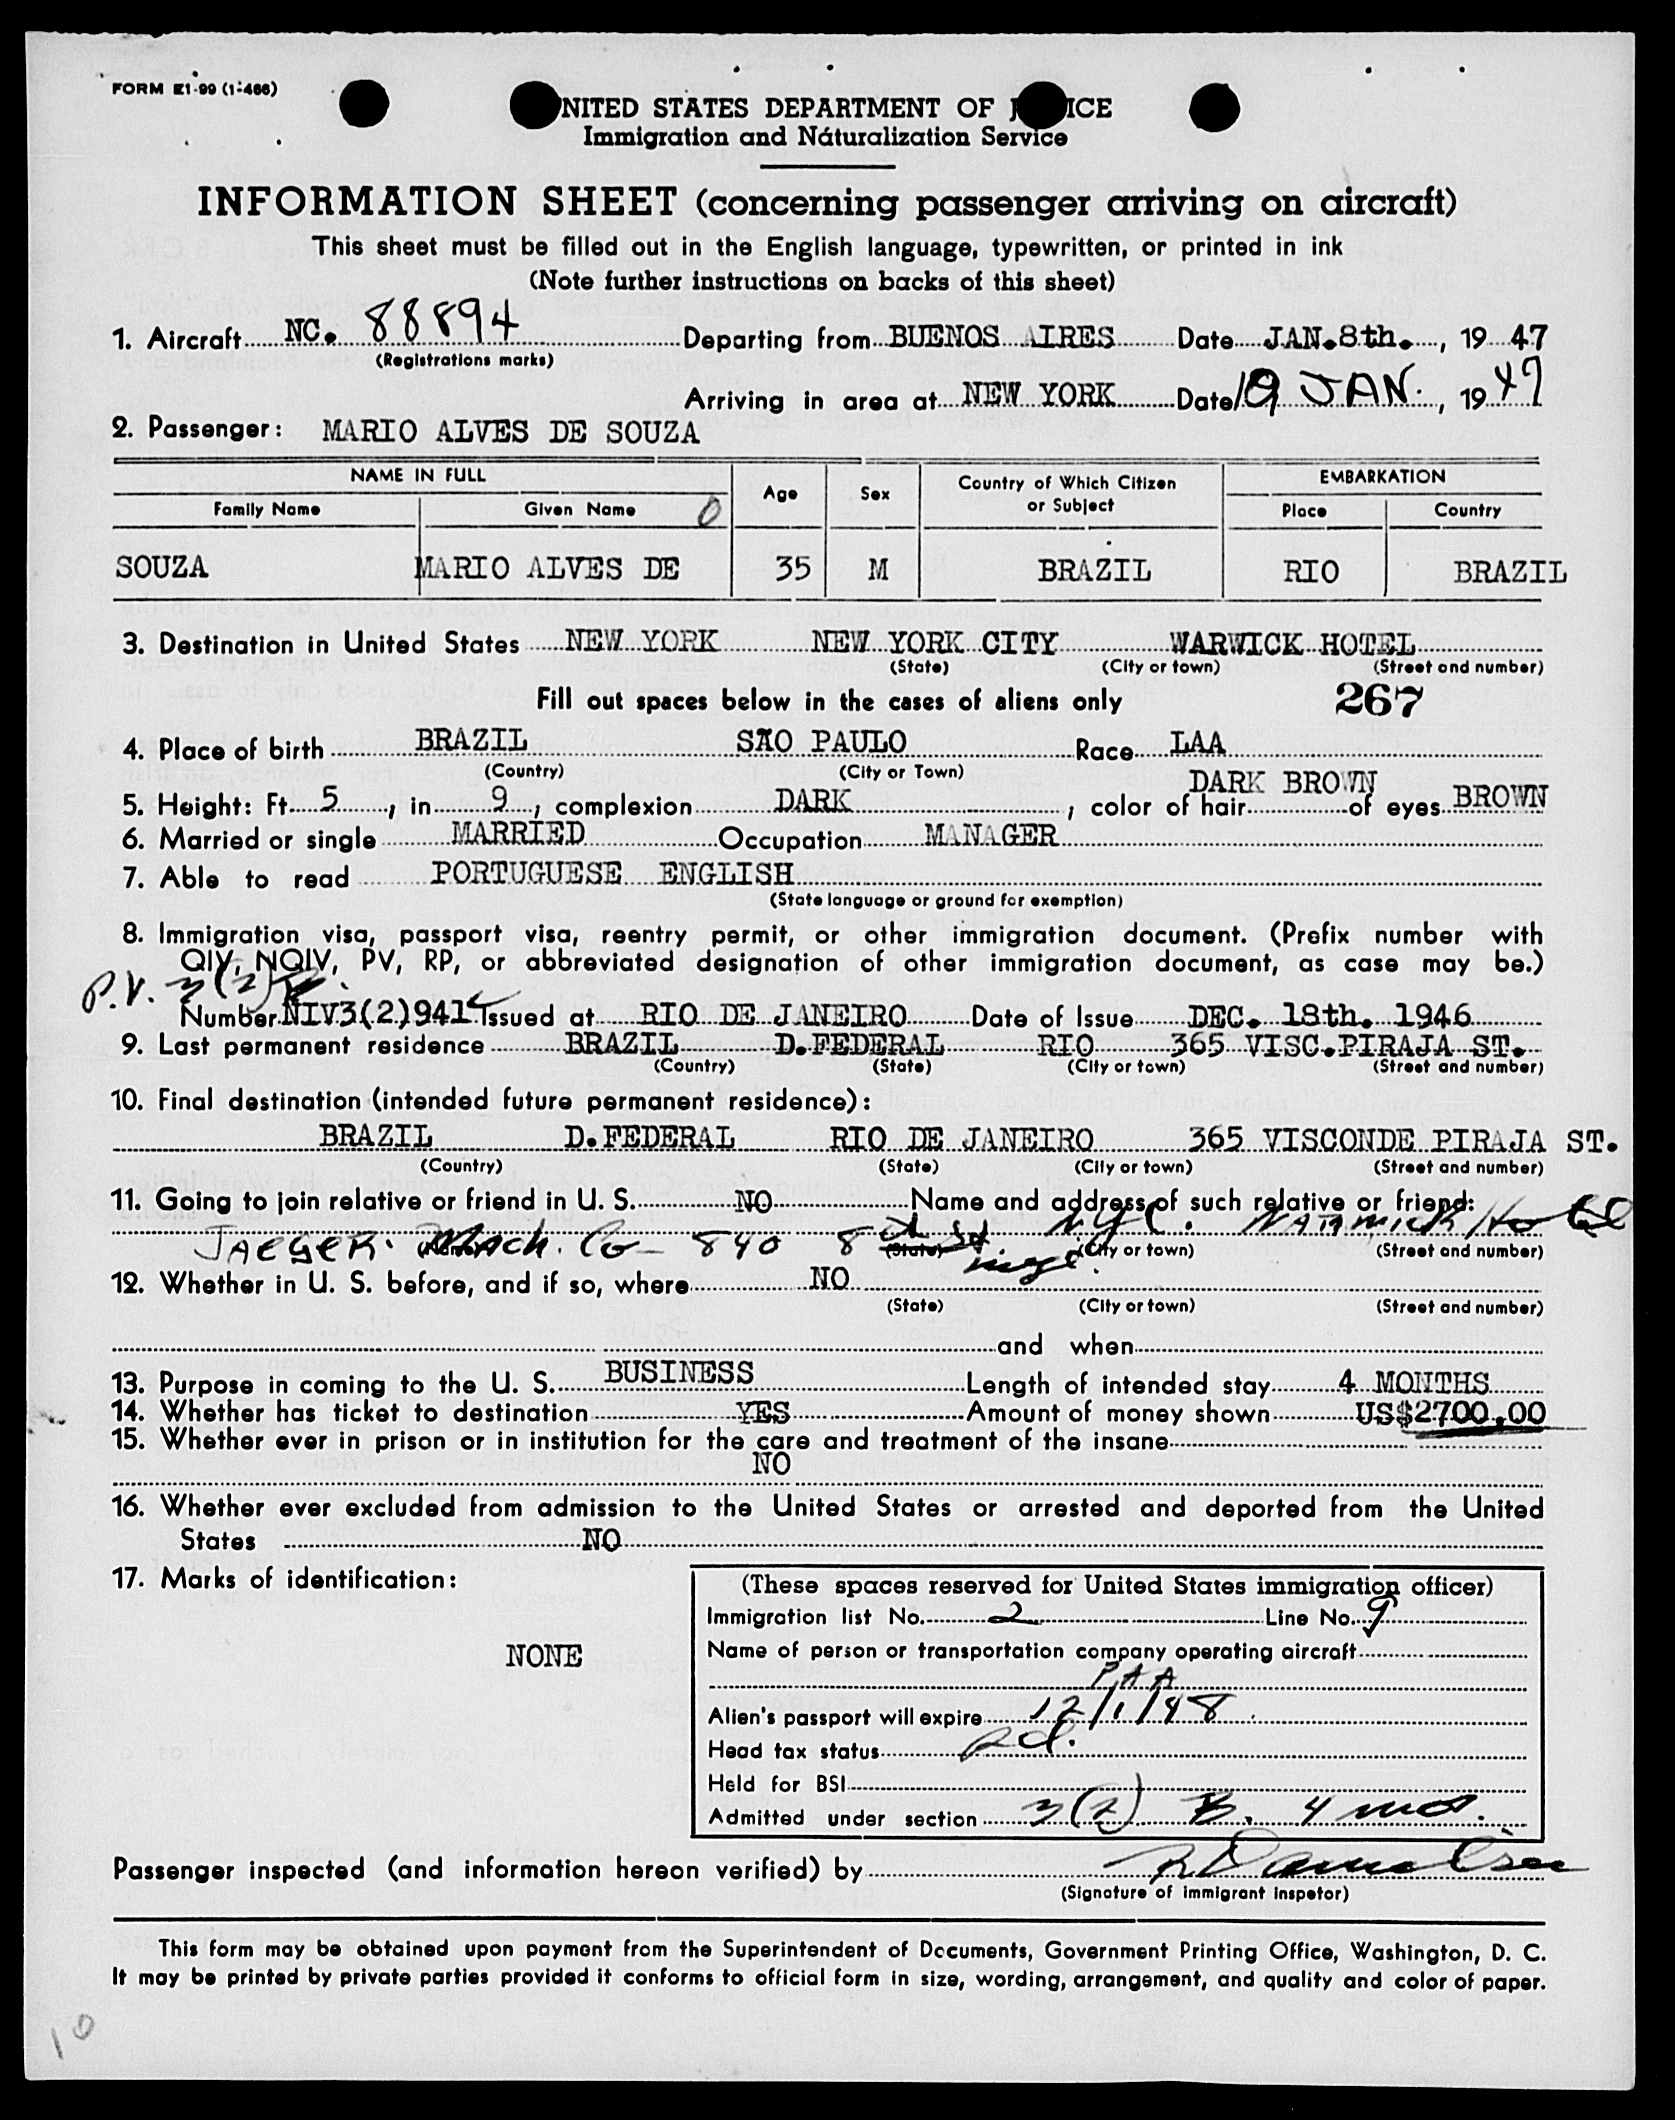 FORM E1-99 (1-466)
NITED STATES DEPARTMENT OF J ICE
Immigration and Naturalization Service
INFORMATION SHEET (concerning passenger arriving on aircraft)
This sheet must be filled out in the English language, typewritten, or printed in ink
(Note further instructions on backs of this sheet)
1. Aircraft NC. 88894 Departing from BUENOS AIRES Date JAN.8th. , 19 47
(Registrations marks)
Arriving in area at NEW YORK Date 19 JAN. , 19 47
2. Passenger: MARIO ALVES DE SOUZA
NAME IN FULL Age Sex Country of Which Citizen or Subject EMBARKATION
Family Name Given Name Place Country
SOUZA MARIO ALVES DE 35 M BRAZIL RIO BRAZIL
3. Destination in United States NEW YORK NEW YORK CITY WARWICK HOTEL
(State) (City or town) (Street and number)
Fill out spaces below in the cases of aliens only 267
4. Place of birth BRAZIL SÃO PAULO Race LAA
(Country) (City or Town)
5. Height: Ft. 5 , in. 9 , complexion DARK , color of hair DARK BROWN of eyes BROWN
6. Married or single MARRIED Occupation MANAGER
7. Able to read PORTUGUESE ENGLISH
(State language or ground for exemption)
8. Immigration visa, passport visa, reentry permit, or other immigration document. (Prefix number with
QIV, NQIV, PV, RP, or abbreviated designation of other immigration document, as case may be.)
P.V. 3(2)
Number NIV3(2)941 Issued at RIO DE JANEIRO Date of Issue DEC. 18th. 1946
9. Last permanent residence BRAZIL D.FEDERAL RIO 365 VISC.PIRAJA ST.
(Country) (State) (City or town) (Street and number)
10. Final destination (intended future permanent residence):
BRAZIL D.FEDERAL RIO DE JANEIRO 365 VISCONDE PIRAJA ST.
(Country) (State) (City or town) (Street and number)
11. Going to join relative or friend in U. S. NO Name and address of such relative or friend:
JAEGER Mach. Co - 840 8th St. N.Y.C. WARWICK Hotel
(State) (City or town) (Street and number)
12. Whether in U. S. before, and if so, where NO
(State) (City or town) (Street and number)
and when
13. Purpose in coming to the U. S. BUSINESS Length of intended stay 4 MONTHS
14. Whether has ticket to destination YES Amount of money shown US$2700.00
15. Whether ever in prison or in institution for the care and treatment of the insane
NO
16. Whether ever excluded from admission to the United States or arrested and deported from the United
States NO
17. Marks of identification:
NONE
(These spaces reserved for United States immigration officer)
Immigration list No. 2 Line No. 9
Name of person or transportation company operating aircraft
PAA
Alien's passport will expire 12/1/48
Head tax status pd.
Held for BSI
Admitted under section 3(2) B. 4 mos.
Passenger inspected (and information hereon verified) by
(Signature of immigrant inspetor)
This form may be obtained upon payment from the Superintendent of Documents, Government Printing Office, Washington, D. C.
It may be printed by private parties provided it conforms to official form in size, wording, arrangement, and quality and color of paper.
10